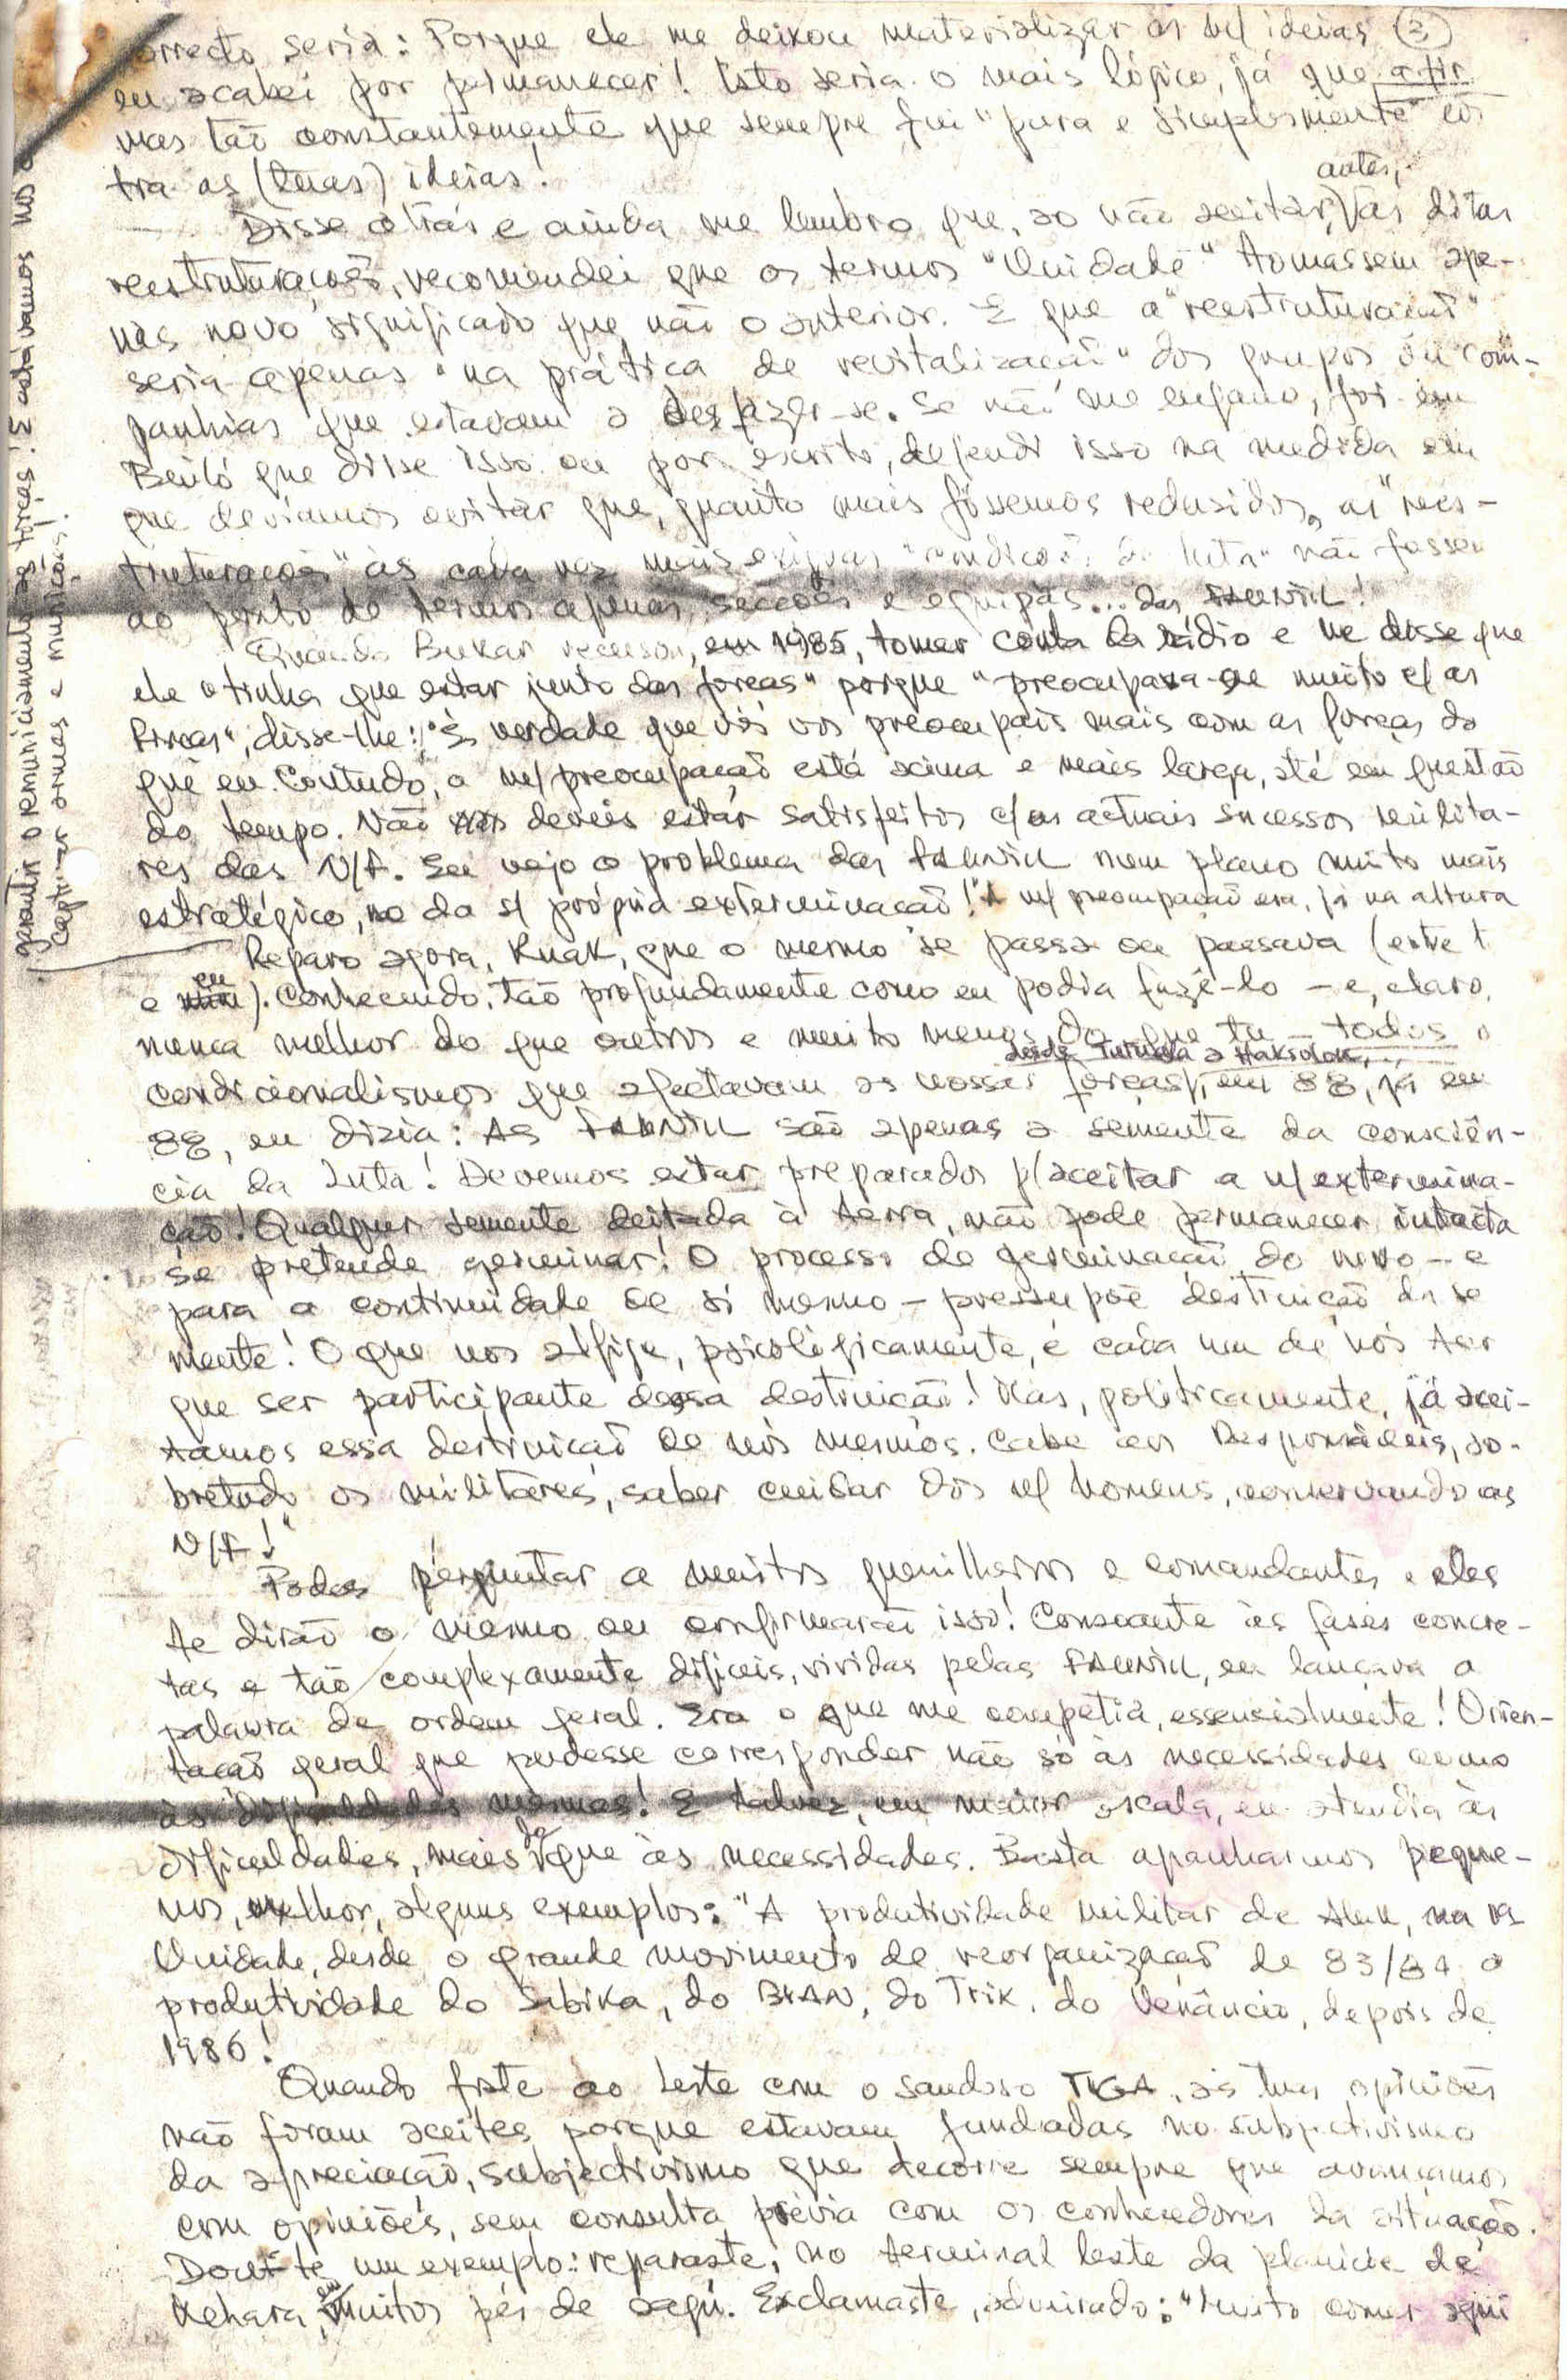 correcto seria: Porque ele me deixou materializar as m/ ideias (2)
eu acabei por permanecer! Isto seria o mais lógico, já que afir
mas tão constantemente que sempre fui "pura e simplesmente" cõ
tra as (tuas) ideias!
Disse atrás e ainda me lembro que, ao não aceitar, antes, as ditas
reestruturações, recomendei que os termos "Unidade" tomassem ape-
nas novo significado que não o anterior. E que a "reestruturação"
seria apenas "na prática de revitalização" dos grupos ou com-
panhias que estavam a desfazer-se. Se não me engano, foi em
Beiló que disse isso ou por escrito, defendi isso na medida em
que devíamos evitar que, quanto mais fôssemos reduzidos, as "rees-
truturações" às cada vez mais exíguas "condições de luta" não fossem
ao ponto de termos apenas secções e equipas... das FALINTIL!
Quando Bukar recusou, em 1985, tomar conta da rádio e me disse que
ele "tinha que estar junto das forças" porque "preocupava-se muito c/ as
forças", disse-lhe: "É verdade que vós vos preocupais mais com as forças do
que eu. Contudo, a m/ preocupação está acima e mais larga, até em questão
do tempo. Não deveis estar satisfeitos c/ os actuais sucessos milita-
res das N/F. Eu vejo o problema das FALINTIL num plano muito mais
estratégico, no da s/ própria exterminação!" A m/ preocupação era, já na altura
garantir o remuniciamento das forças! E estávamos nós a
capturar armas e munições!
Reparo agora, Ruak, que o mesmo se passa ou passava (entre t
e eu). Conhecendo, tão profundamente como eu podia fazê-lo - e, claro,
nunca melhor do que outros e muito menos do que tu - todos o
condicionalismos que afectavam as nossas forças, desde Tutuala a Haksolok, em 88, já em
88, eu dizia: As FALINTIL são apenas a semente da consciên-
cia da Luta! Devemos estar preparados p/ aceitar a n/ extermina-
ção! Qualquer semente deitada à terra, não pode permanecer intacta
se pretende germinar! O processo de germinação do novo - e
para a continuidade de si mesmo - pressupõe destruição da se
mente! O que nos aflige, psicològicamente, é cada um de nós ter
que ser participante dessa destruição! Mas, politicamente, já acei-
támos essa destruição de nós mesmos. Cabe aos Responsáveis, so-
bretudo os militares, saber cuidar dos n/ homens, conservando as
N/F!"
Podes perguntar a muitos guerrilheiros e comandantes e eles
te dirão o mesmo ou confirmarão isso! Consoante às fases concre-
tas e tão complexamente difíceis, vividas pelas FALINTIL, eu lançava a
palavra de ordem geral. Era o que me competia, essencialmente! Orien-
tação geral que pudesse corresponder não só às necessidades como
às dificuldades mesmas! E talvez, em maior escala, eu atendia às
dificuldades, mais do que às necessidades. Basta apanharmos peque-
nos, melhor, alguns exemplos: "A produtividade militar de Aluk, na 1ª
Unidade, desde o grande movimento de reorganização de 83/84 a
produtividade do Sabika, do BIAN, do Trix, do Venâncio, depois de
1986!
Quando foste ao Leste com o saudoso TIGA, as tuas opiniões
não foram aceites porque estavam fundadas no subjectivismo
da apreciação, subjectivismo que decorre sempre que avançamos
com opiniões, sem consulta prévia com os conhecedores da situação.
Dou-te um exemplo: reparaste, no terminal leste da planície de
Nehara, em muitos pés de sagú. Exclamaste, admirado: "Muito comer aqui